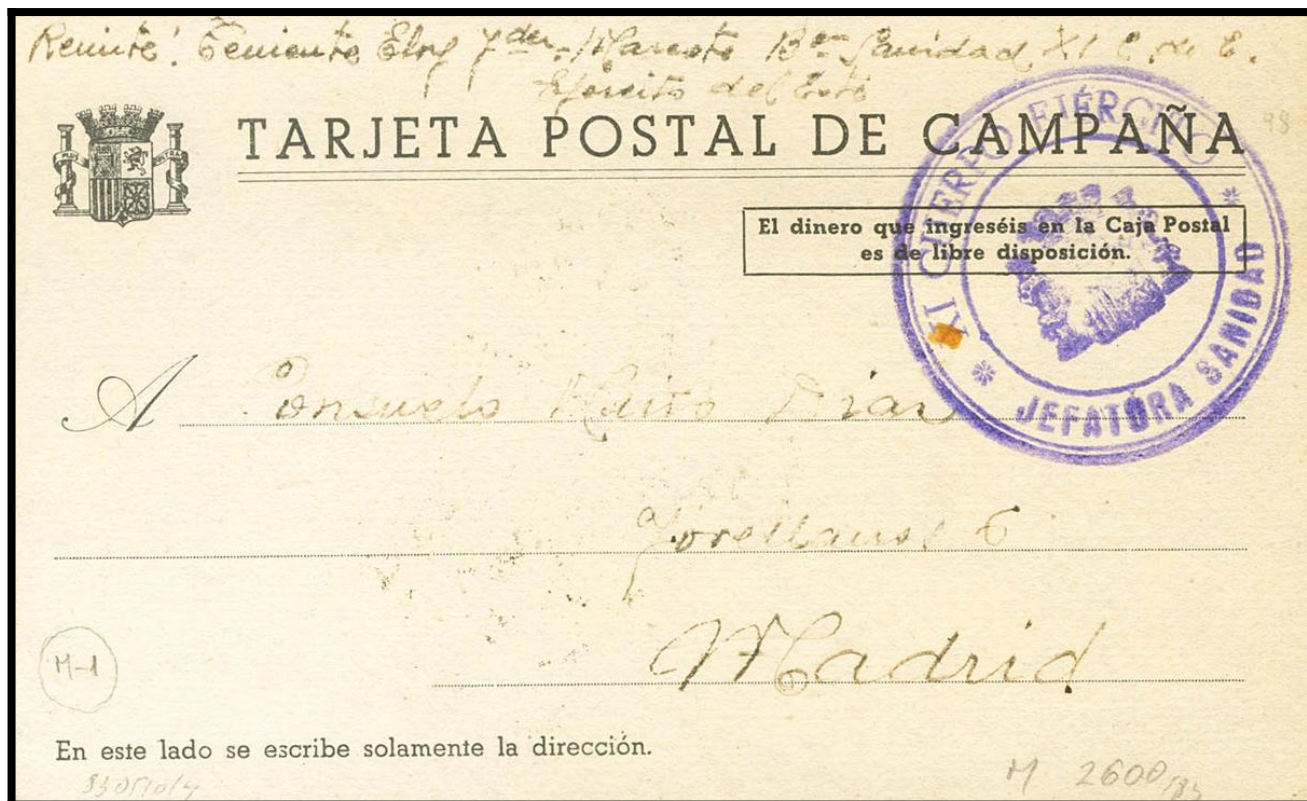 Remite: Teniente Eloy Sanidad XI C. de E.
Ejército del Este
TARJETA POSTAL DE CAMPAÑA
98
PLUS ULTRA
El dinero que ingreséis en la Caja Postal
es de libre disposición.
XI CUERPO EJÉRCITO * JEFATURA SANIDAD *
A Consuelo
6
Madrid
M-1
En este lado se escribe solamente la dirección.
M 2600